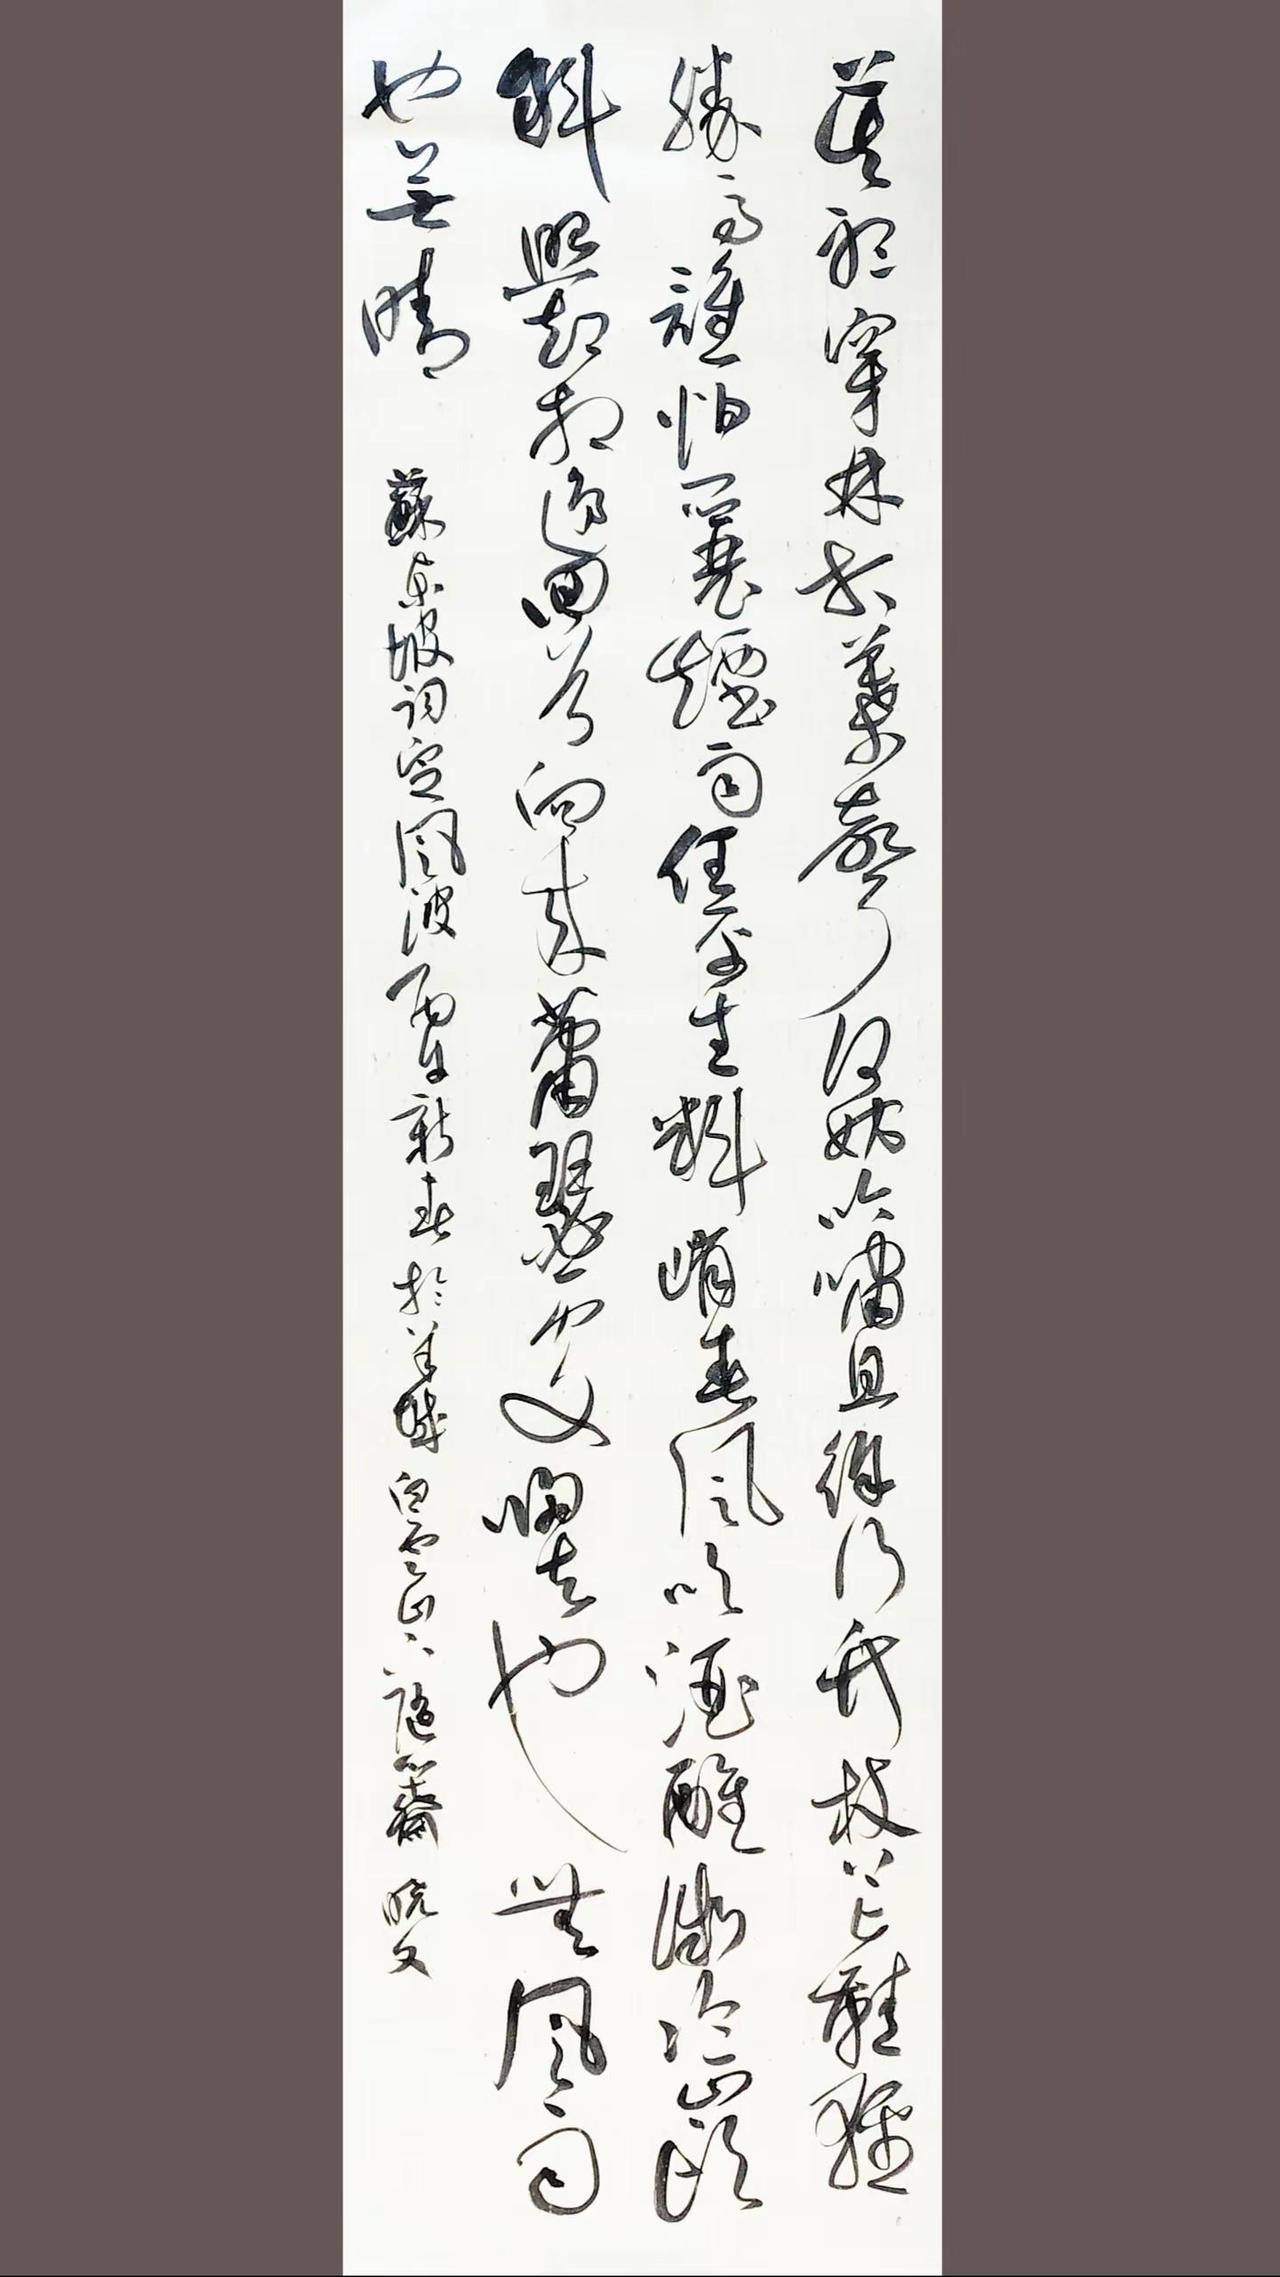 莫聽穿林打葉聲何妨吟嘯且徐行竹杖芒鞋輕
勝馬誰怕一蓑煙雨任平生料峭春風吹酒醒微冷山頭
斜照却相迎回首向來蕭瑟處歸去也無風雨
也無晴
蘇東坡詞定風波丙午新春於羊城白雲山下齋曉文